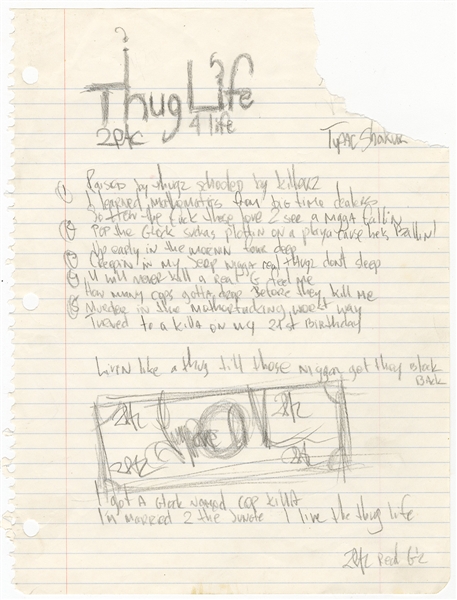 Thug Life
2PAC 4 life
Tupac Shakur
① Raised by thugz schooled by killaz
I learned mathematics from big time dealers
② So how the fuck those love 2 see a nigga fallin
Pop the Glock suckas plottin on a playa cause he's Ballin!
③ Up early in the mornin four deep
Creepin in my Jeep nigga real thugz dont sleep
④ U will never kill a real G feel me
How many cops gotta drop Before they kill me
⑤ Murder in the muthafucking worst way
Turned to a killa on my 21st Birthday
Livin like a thug till those niggaz got they Black
Back
2PAC 2PAC
Supreme
2PAC 2PAC
I got A Glock named cop killa
I'm married 2 the Jungle I live the thug life
2PAC Real G'z